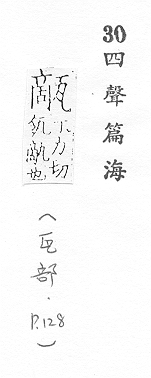 30四聲篇海
甋丁力切
瓴甋也
(瓦部.P.128)